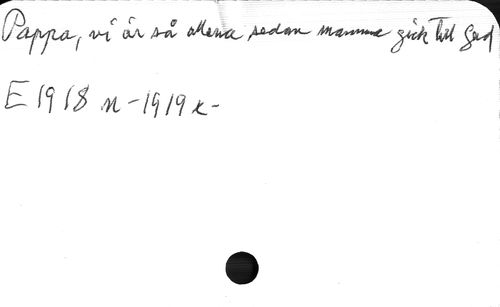 Pappa, vi är så allena sedan mamma gick till Gud
E 1918 n - 1919 k -